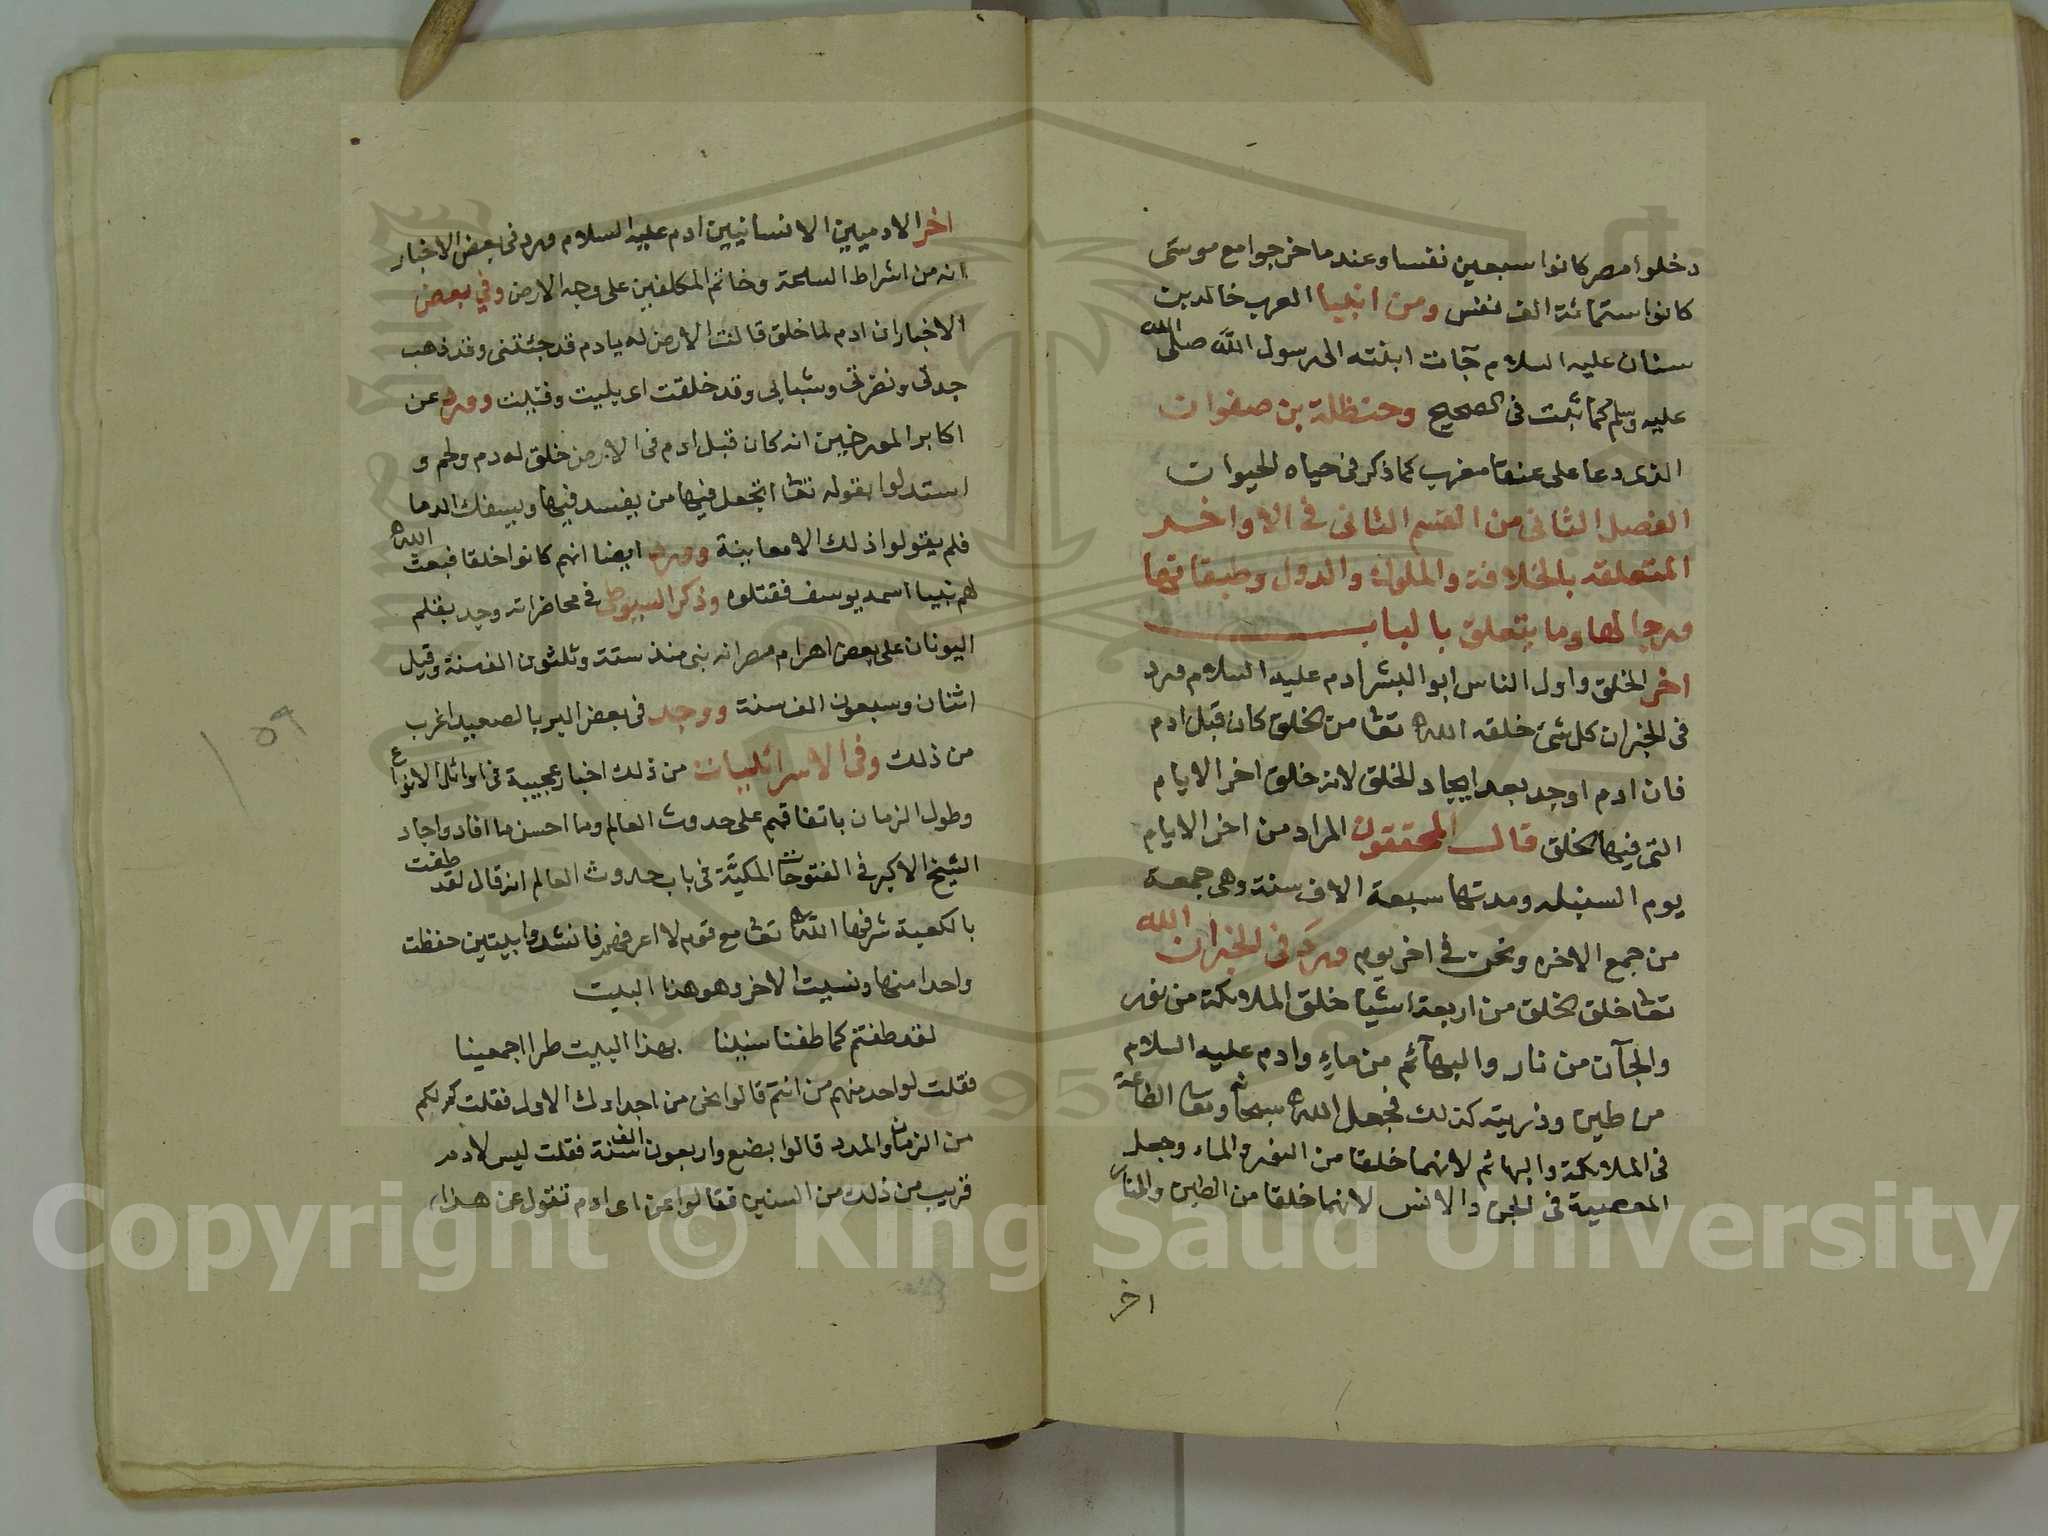 دخلوا مصر كانوا سبعين نفسا وعندما خرجوا مع موسى
كانوا ستمائة الف نفس ومن انبيا العرب خالد بن
سنان عليه السلام جآت ابنته الى رسول الله صلى الله
عليه وسلم كما ثبت فى الصحيح وحنظلة بن صفوان
الذى دعا على عنقا مغرب كما ذكر فى حياه الحيوان
الفصل الثانى من القسم الثانى فى الاواخر
المتعلقه بالخلافة والملوك والدول وطبقاتها
ورجالها وما يتعلق بالباب
اخر الخلق واول الناس ابو البشر ادم عليه السلام ورد
فى الخبر ان كل شئ خلقه الله تعا من الخلق كان قبل ادم
فان ادم اوجد بعد ايجاد الخلق لانه خلق اخر الايام
التى فيها الخلق قال المحققون المراد من اخر الايام
يوم السنبله ومدتها سبعة الاف سنة وهى جمعة
من جمع الاخره ونحن فى اخر يوم ورد فى الخبر ان الله
تعا خلق الخلق من اربعة اشيا خلق الملائكة من نور
والجآن من نار والبهآئم من ماء وادم عليه السلام
من طين وذريته كذلك فجعل الله سبحانه وتعا الطاعة
فى الملائكة والبهائم لانهما خلقا من النور والماء وجعل
المعصية فى الجن والانس لانهما خلقا من الطين والنار
اخر
اخر الادميين الانسانيين ادم عليه السلام ورد فى بعض الاخبار
انه من اشراط الساعة وخاتم المكلفين على وجه الارض وفي بعض
الاخبار ان ادم لما خلق قالت الارض له يادم قد جئتنى وقد ذهب
جدتى ونضرتى وشبابى وقد خلقت اى بليت وورد عن
اكابر المورخين انه كان قبل ادم فى الارض خلق له دم ولحم و
استدلوا بقوله تعا اتجعل فيها من يفسد فيها ويسفك الدما
فلم يقولوا ذلك الا معاينة وورد ايضا انهم كانوا خلقا فبعث الله
لهم نبيا اسمه يوسف فقتلوه وذكر السيوطى فى محاضراته وجد بقلم
اليونان على بعض اهرام مصر انه بنى منذ ستة وثلثون الف سنة وقيل
اثنان وسبعون الف سنة ووجد فى بعض البر بالصعيد اغرب
من ذلك وفى الاسرائليات من ذلك اخبار عجيبة فى اوائل الانواع
وطول الزمان باتفاقهم على حدوث العالم وما احسن ما افاد واجاد
الشيخ الاكبر فى الفتوحات المكيَّة فى باب حدوث العالم انه قال لقد طفت
بالكعبة شرفها الله تعا مع قوم لا اعرفهم فانشدوا بيتين حفظت
واحدا منها ونسيت الاخر وهو هذا البيت
لقد طفتم كما طفنا سنينا بهذا البيت طرا اجمعينا
فقلت لواحد منهم من انتم قالوا نحن من اجدادك الاول فقلت كم لكم
من الزمان والمدد قالوا بضع واربعون الف سنة فقلت ليس لادم
قريب من ذلك من السنين فقالوا عن اى ادم تقول عن هذا
١٥٩
Copyright © King Saud University